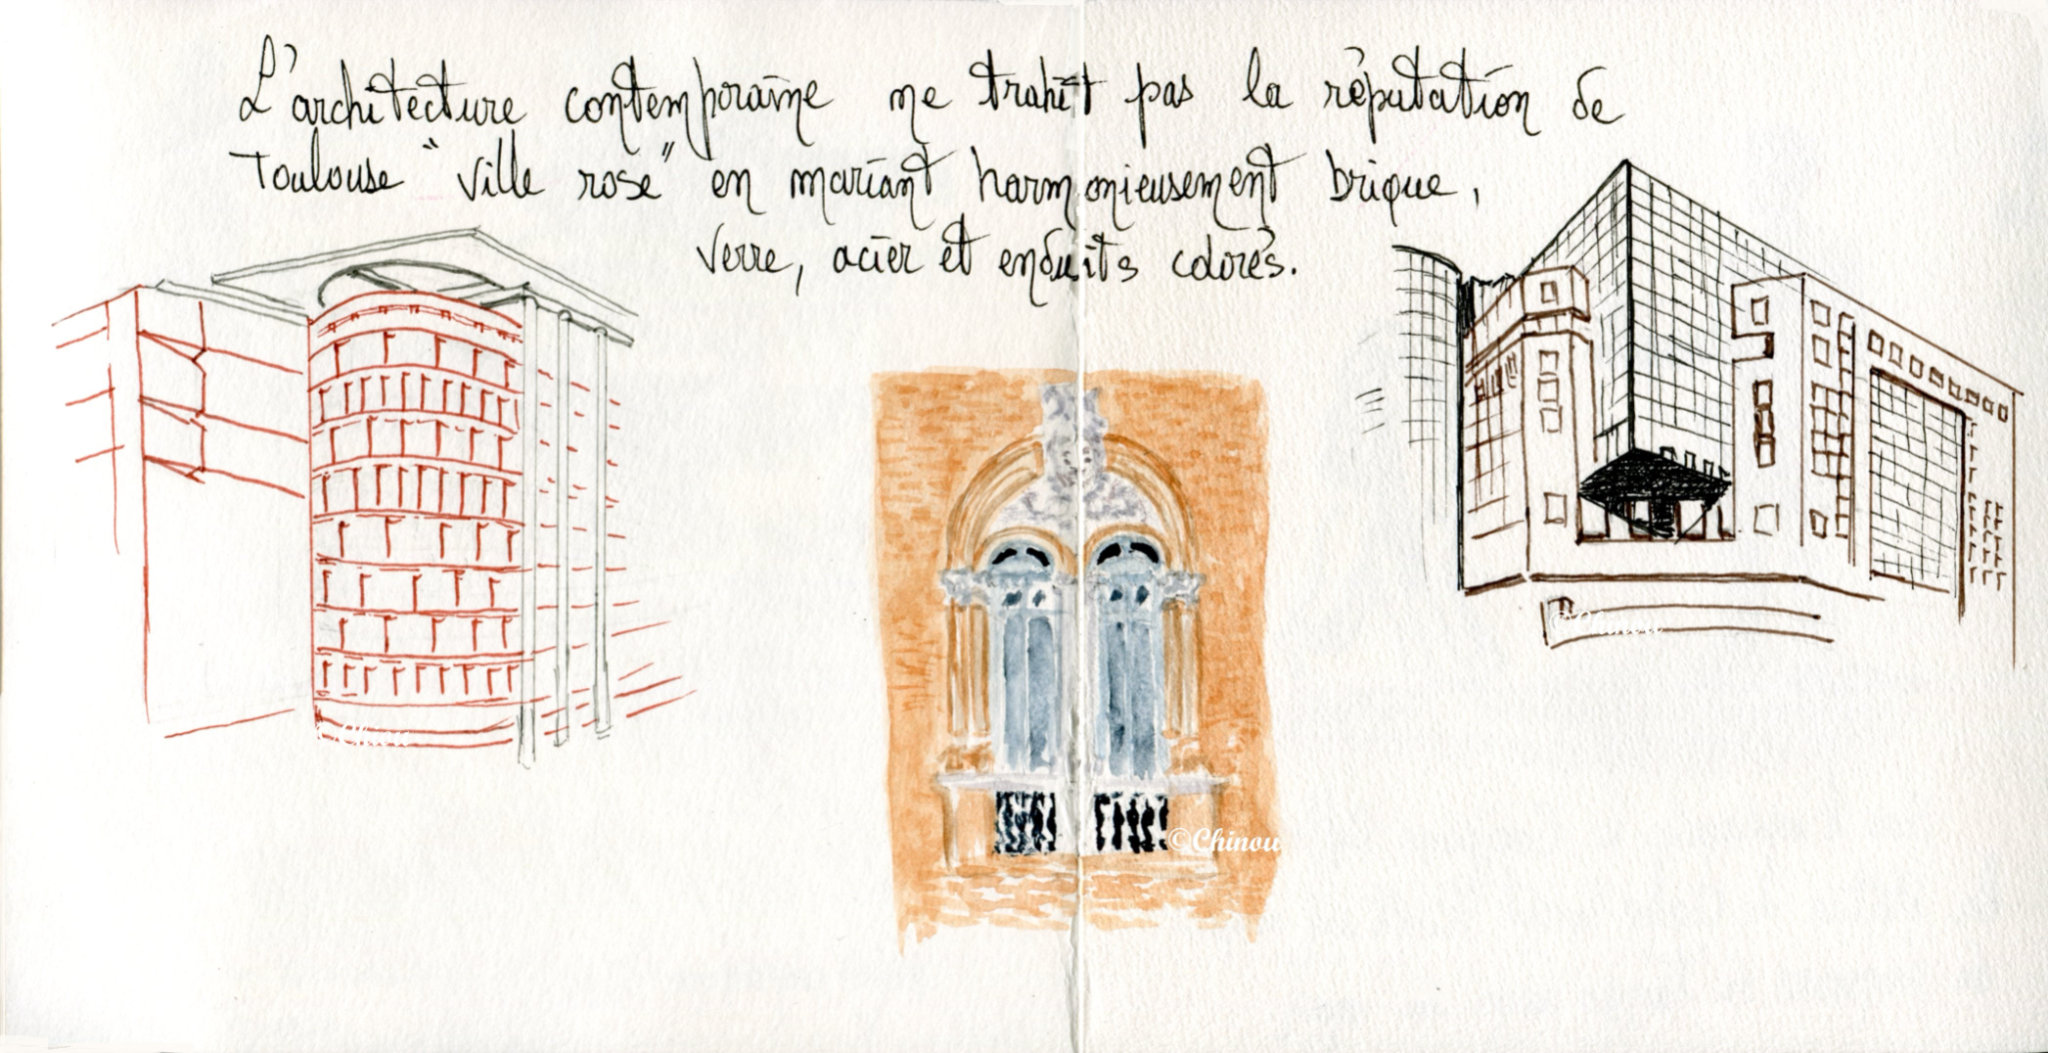 L'architecture contemporaine ne trahit pas la réputation de
Toulouse "ville rose" en mariant harmonieusement brique,
verre, acier et enduits colorés.
©Chinou
©Chinou